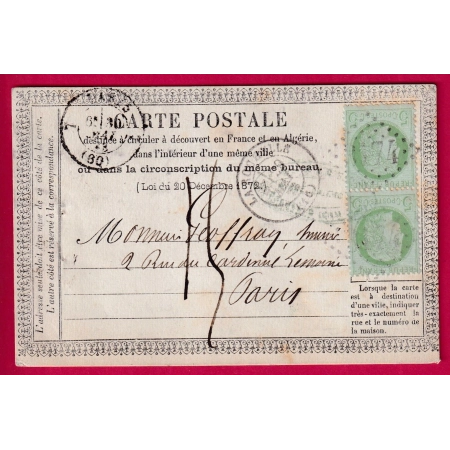 CARTE POSTALE
destinée à circuler à découvert en France et en Algérie,
dans l'intérieur d'une même ville
ou dans la circonscription du même bureau.
(Loi du 20 Décembre 1872.)
Monsieur Geoffray
2 Rue du Cardinal Lemoine
Paris
15
PARIS
(60)
L'adresse seule doit être mise de ce côté de la carte.
L'autre côté est réservé à la correspondance.
Lorsque la carte
est à destination
d'une ville, indiquer
très-exactement la
rue et le numéro de
la maison.